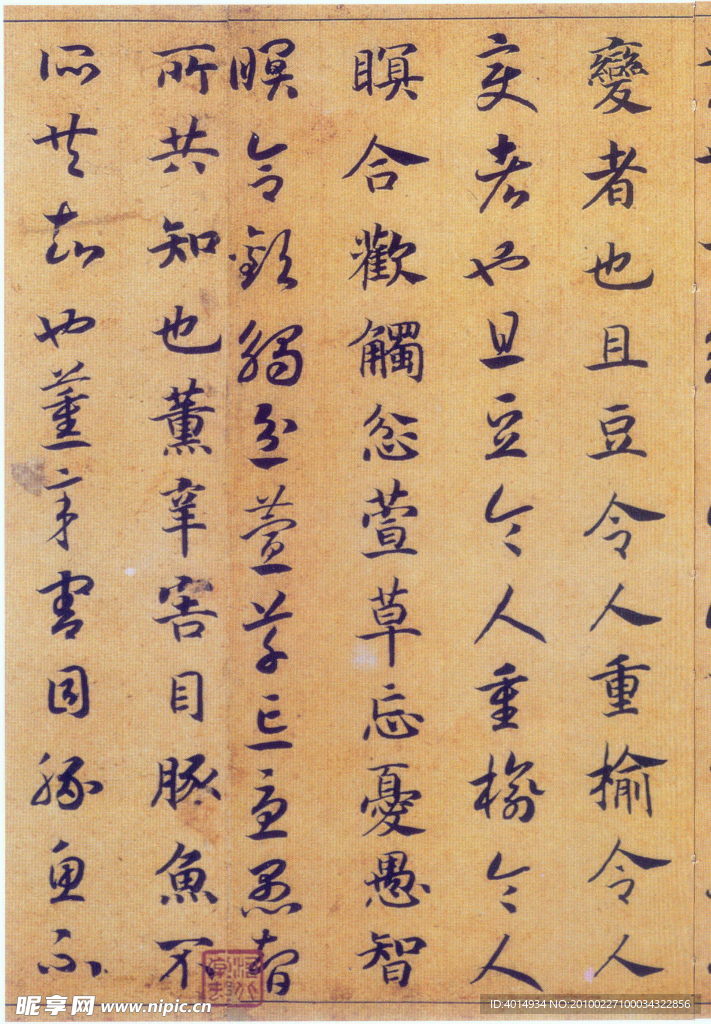 變者也且豆令人重榆令人
变者也且豆令人重榆令人
瞑合歡觸忿萱草忘憂愚智
瞑合歡觸忿萱草忘憂愚智
所共知也薰辛害目豚魚不
所共知也薰辛害目豚魚不
昵享网 www.nipic.cn
ID:4014934 NO:20100227100034322856